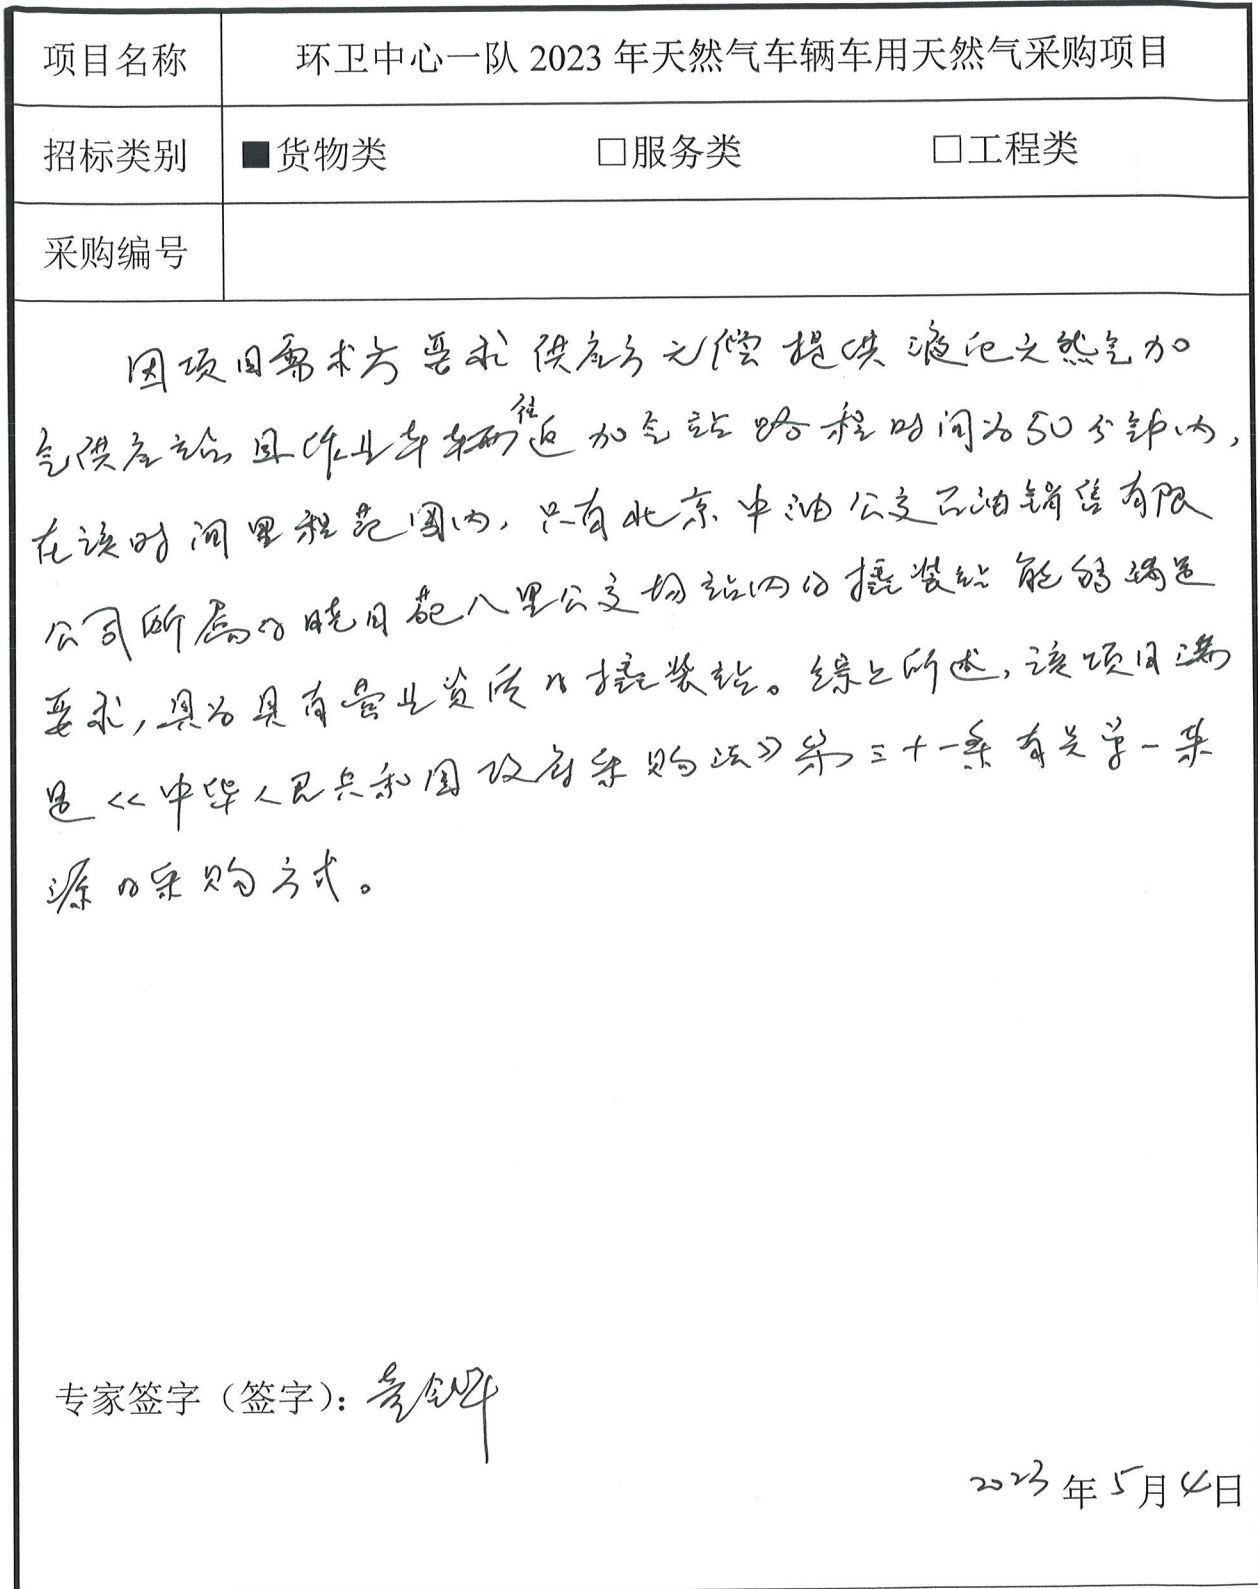 项目名称 环卫中心一队 2023 年天然气车辆车用天然气采购项目
招标类别 ■货物类 □服务类 □工程类
采购编号
因项目需求方要求供应方无偿提供液化天然气加
气供应站且作业车辆往返加气站路程时间为50分钟内,
在该时间里程范围内,只有北京中油公交石油销售有限
公司所属的晓月苑八里公交场站内的撬装站能够满足
要求,具为具有营业资质的撬装站。综上所述,该项目满
足《中华人民共和国政府采购法》第三十一条有关单一来
源的采购方式。
专家签字(签字):
2023 年 5 月 4 日